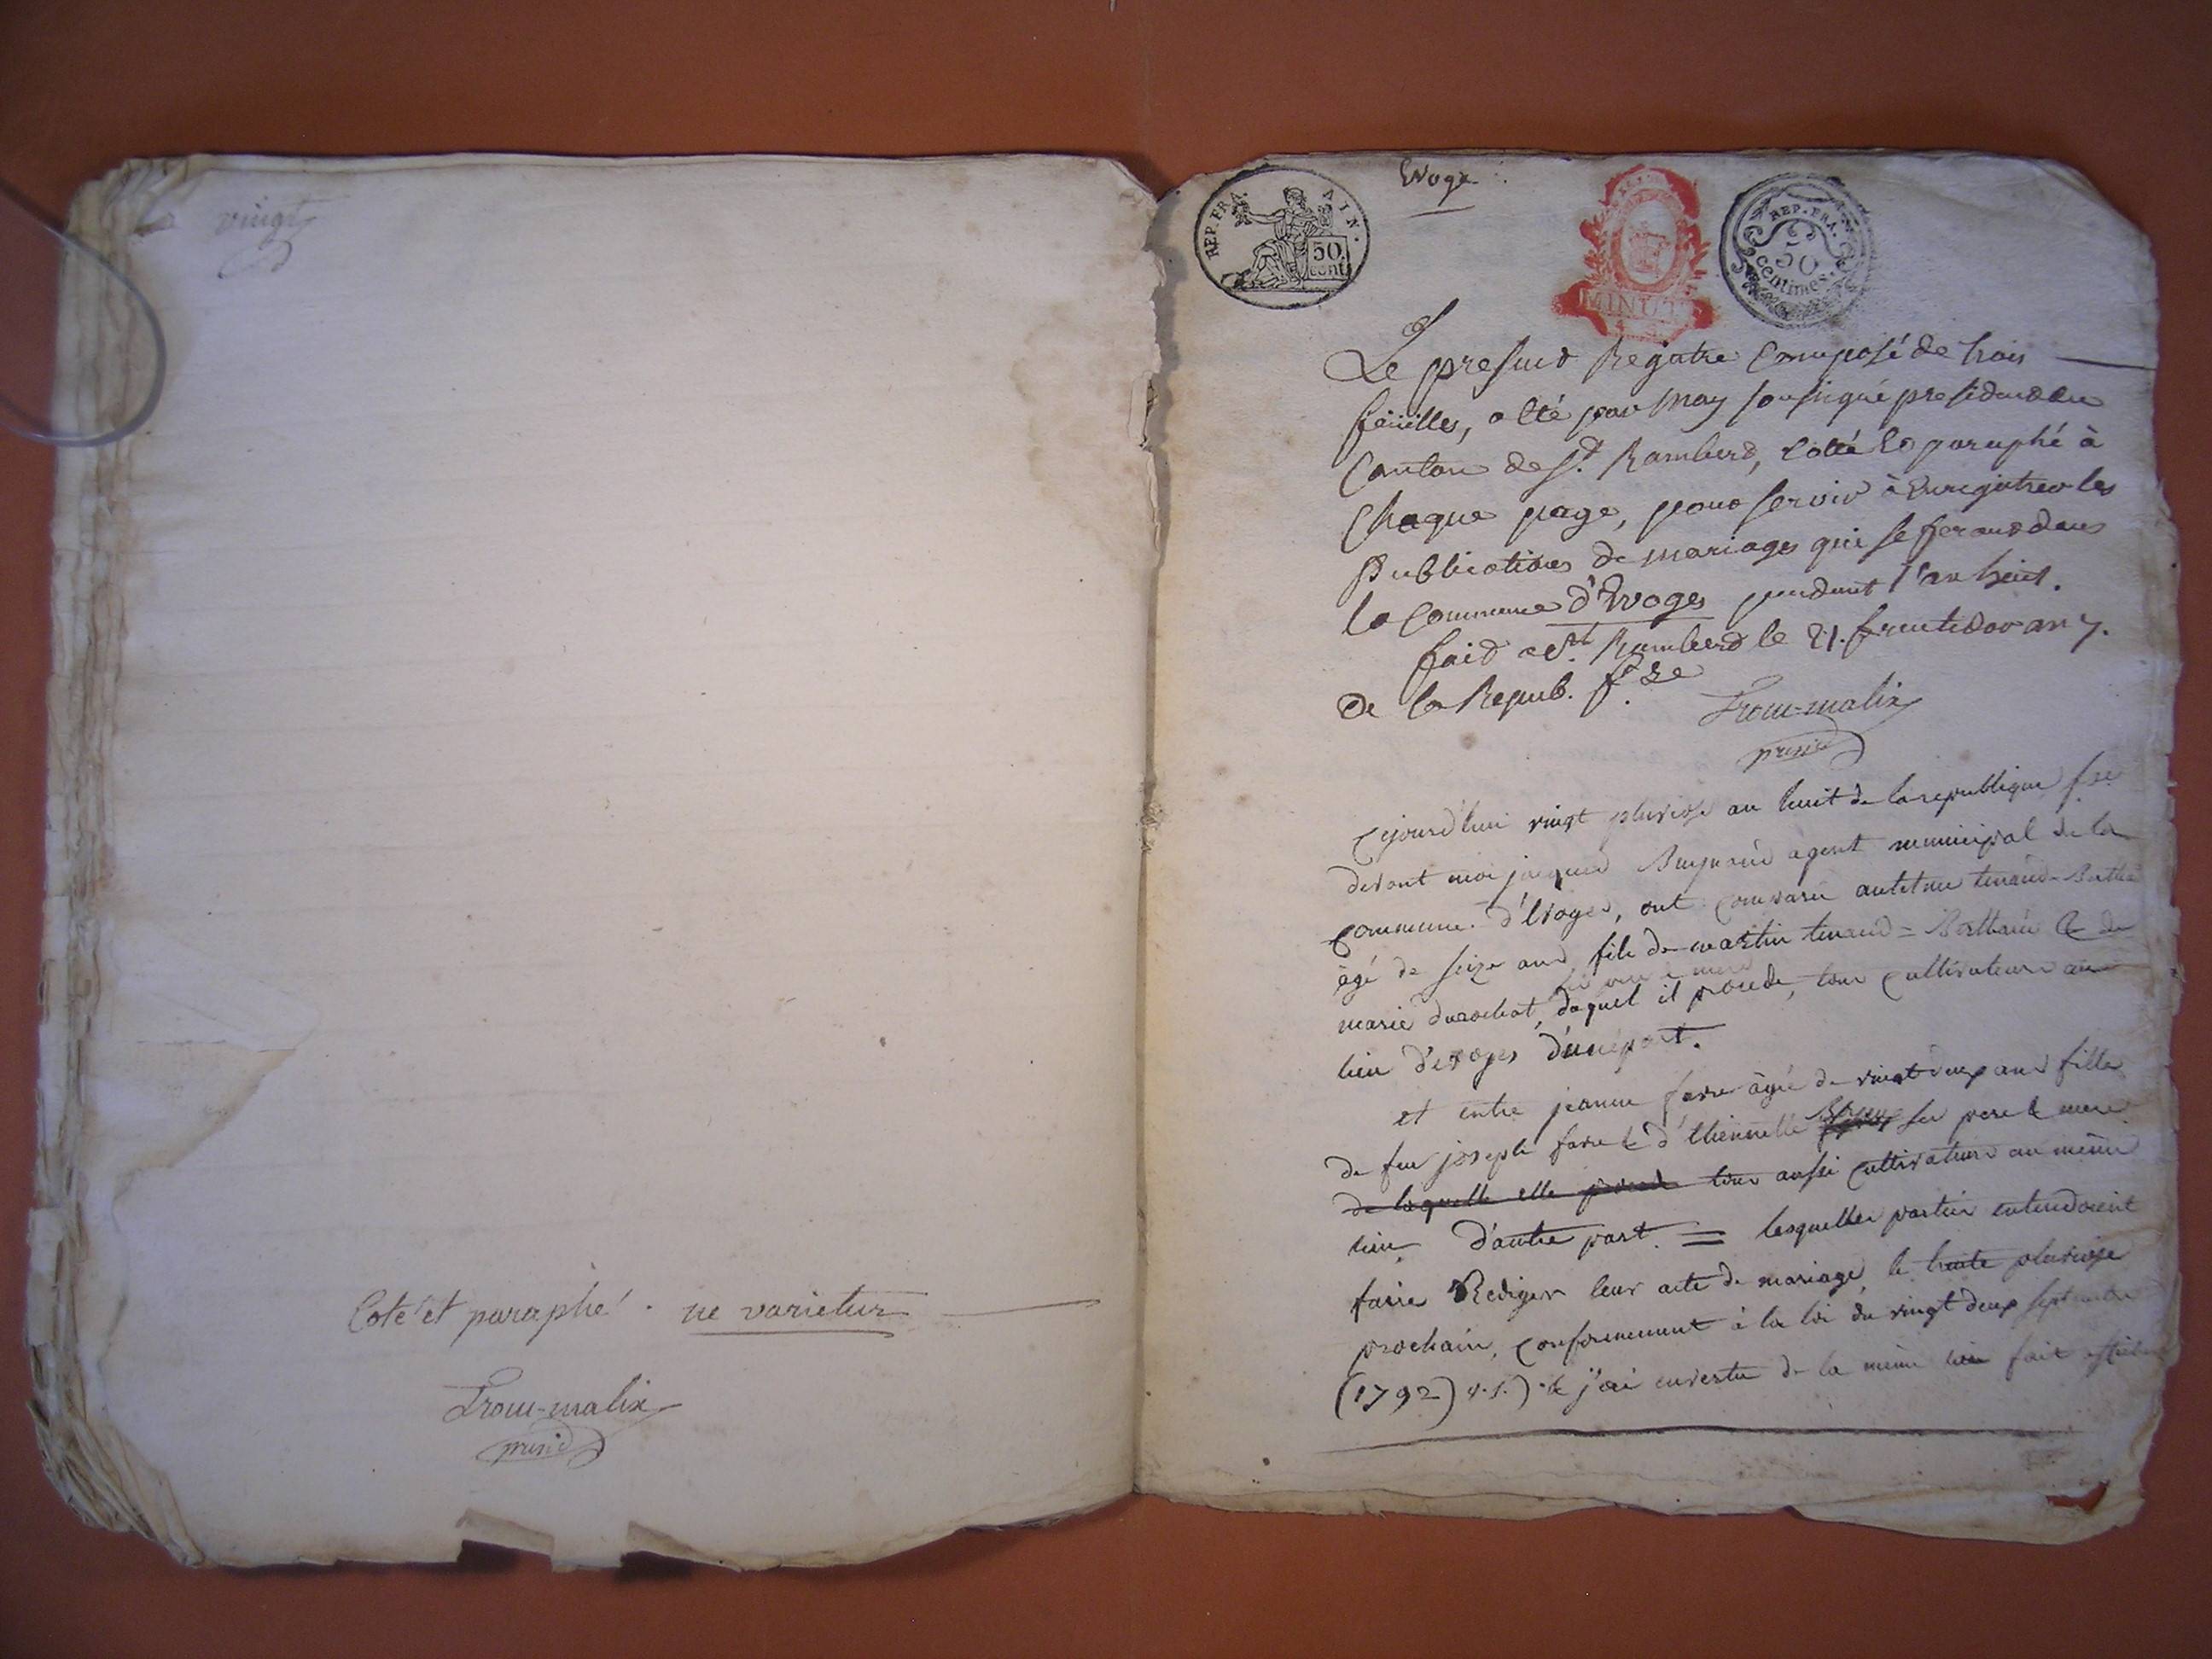 vingt
Coté et paraphé. ne varietur
Trocu-malix
présid
Evoge
REP. FRA. AIN.
50
cent
MINUTE
REP. FRA.
50
centimes.
Le present Registre Composé de trois
feüilles, a Eté par Moy soussigné president du
Canton de St. Rambert, Cotté Et paraphé à
Chaque page, pour servir à Enregistrer les
Publications de mariages qui se feront dans
la Commune d'Evoges pendant l'an huit.
fait a St. Rambert le 21. fructidor an 7.
de la Repub. fse
Trocu-malix
présid
Cejourd'hui vingt pluviose an huit de la republique fse
devant moi jacques agent municipal de la
commune d'Evoges, ont comparu antelme tenand-
âgé de seize ans fils de martin tenand = &de
ses pere & mere
marie durochat, duquel il procede, tous cultivateurs au
lieu d'evoges d'une part.
et entre jeanne favre âgée de vingt deux ans fille
de feu joseph favre & d'Etiennette ses pere & mere
de laquelle elle procede tous aussi cultivateurs au même
lieu d'autre part = lesquelles parties entendoient
faire Rediger leur acte de mariage le trente pluviose
prochain, conformement à la loi du vingt deux septembre
(1792) v.s.) & j'ai envertu de la même loi fait afficher